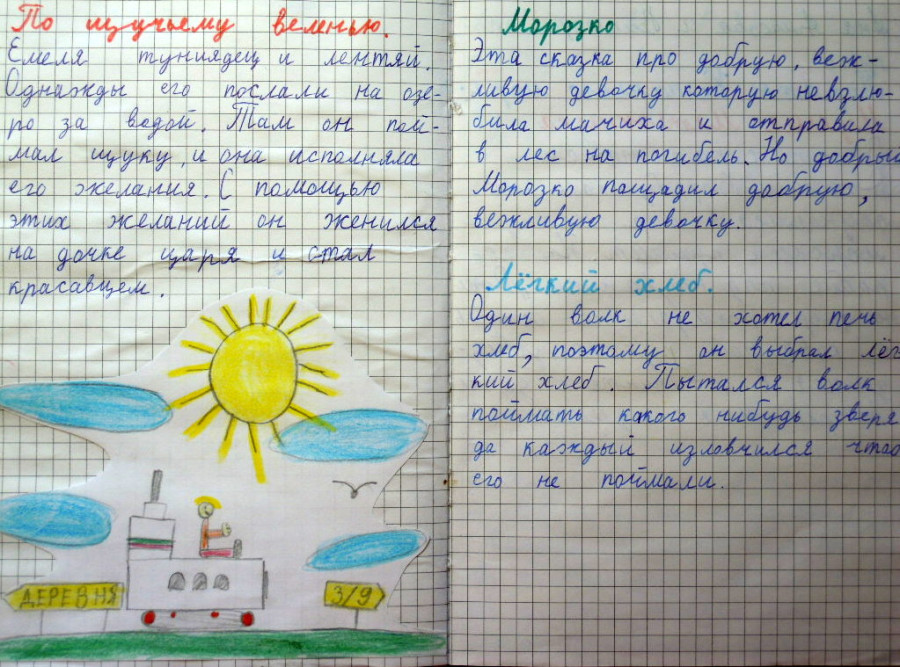 По щучьему веленью.
Емеля туниядец и лентяй.
Однажды его послали на озе-
ро за водой. Там он пой-
мал щуку, и она исполняла
его желания. С помощью
этих желаний он женился
на дочке царя и стал
красавцем.
ДЕРЕВНЯ
3/9
Морозко
Эта сказка про добрую, веж-
ливую девочку которую невзлю-
била мачиха и отправила
в лес на погибель. Но добрый
Морозко пощадил добрую,
вежливую девочку.
Лёгкий хлеб.
Один волк не хотел печь
хлеб, поэтому он выбрал лёг
кий хлеб. Пытался волк
поймать какого нибудь зверя
да каждый изловчился чтоб
его не поймали.